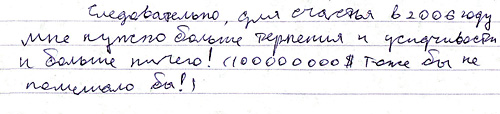 Следовательно, для счастья в 2006 году
мне нужно больше терпения и усидчивости
и больше ничего! (100000000$ тоже бы не
помешало бы!)